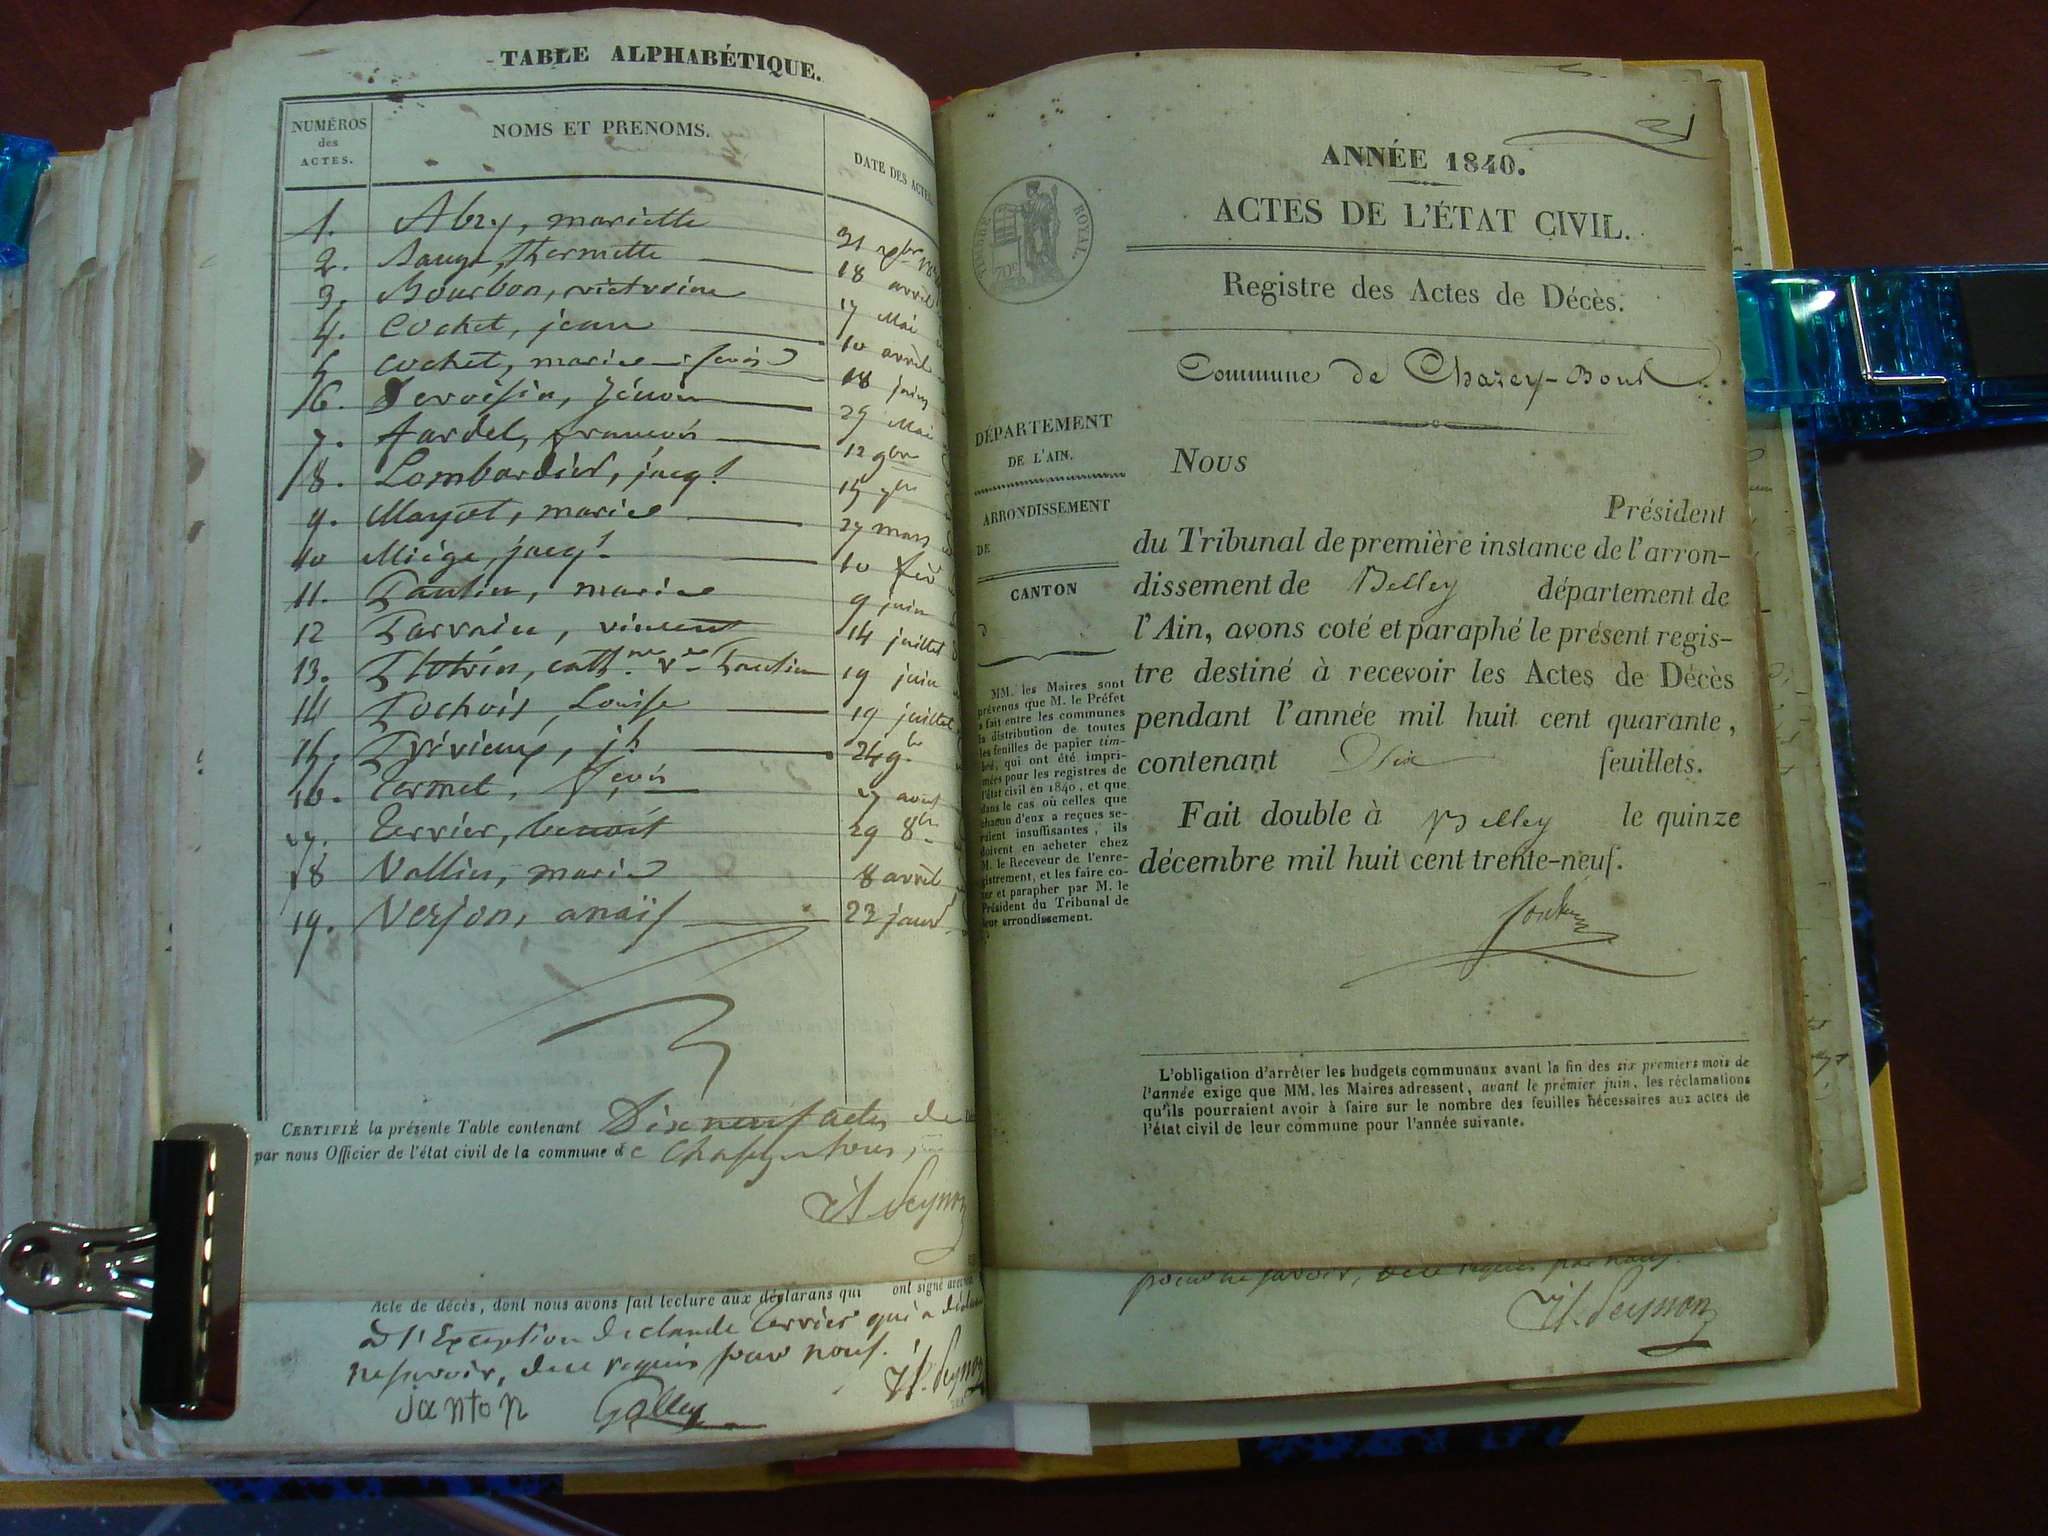 TABLE ALPHABÉTIQUE.
NUMÉROS des ACTES.
NOMS ET PRENOMS.
DATE DES ACTES
1. Abry, mariette 31 xbre
2. 18 avril
3. Bourbon, victorine 17 Mai
4. Cochet, jean 10 avril
5 Cochet, marie 18 juin
6. 29 Mai
7. Fardel, francois 12 9bre
8. Lombardier, jacq.t 15 7bre
9. Mayot, marie 27 mars
10 Miège, jacq.t 10 fév
11. Pantin, marie 9 juin
12 Parvoin, vincent 14 juillet
13. cath.ne v.e Pantin 19 juin
14 Pochois, Louise 19 juillet
15. j.h 24 9.bre
16. Termet, 27 aout
17. Terrier, benoit 29 8.bre
18 Vallin, marie 8 avril
19. Verjon, anaïs 23 janv.
CERTIFIÉ la présente Table contenant Dix neuf actes de
par nous Officier de l'état civil de la commune de Chasey-bons,
H. Peysson
Acte de décès, dont nous avons fait lecture aux déclarans qui ont signé avec
à l'Exception de claude Terrier qui a déclaré
ne savoir, de ce requis par nous.
janton Galley H. Peysson
21
ANNÉE 1840.
ACTES DE L'ÉTAT CIVIL.
TIMBRE ROYAL
70c
Registre des Actes de Décès.
Commune de Chazey-Bons
DÉPARTEMENT
DE L'AIN.
ARRONDISSEMENT
DE
CANTON
d
MM. les Maires sont
prévenus que M. le Préfet
a fait entre les communes
la distribution de toutes
les feuilles de papier tim-
bré, qui ont été impri-
mées pour les registres de
l'état civil en 1840, et que
dans le cas où celles que
chacun d'eux a reçues se-
raient insuffisantes, ils
doivent en acheter chez
M. le Receveur de l'enre-
gistrement, et les faire co-
ter et parapher par M. le
Président du Tribunal de
leur arrondissement.
Nous
Président
du Tribunal de première instance de l'arron-
dissement de Belley département de
l'Ain, avons coté et paraphé le présent regis-
tre destiné à recevoir les Actes de Décès
pendant l'année mil huit cent quarante,
contenant Six feuillets.
Fait double à Belley le quinze
décembre mil huit cent trente-neuf.
L'obligation d'arrêter les budgets communaux avant la fin des six premiers mois de
l'année exige que MM. les Maires adressent, avant le premier juin, les réclamations
qu'ils pourraient avoir à faire sur le nombre des feuilles nécessaires aux actes de
l'état civil de leur commune pour l'année suivante.
pour ne savoir, de ce requis par nous.
H. Peysson